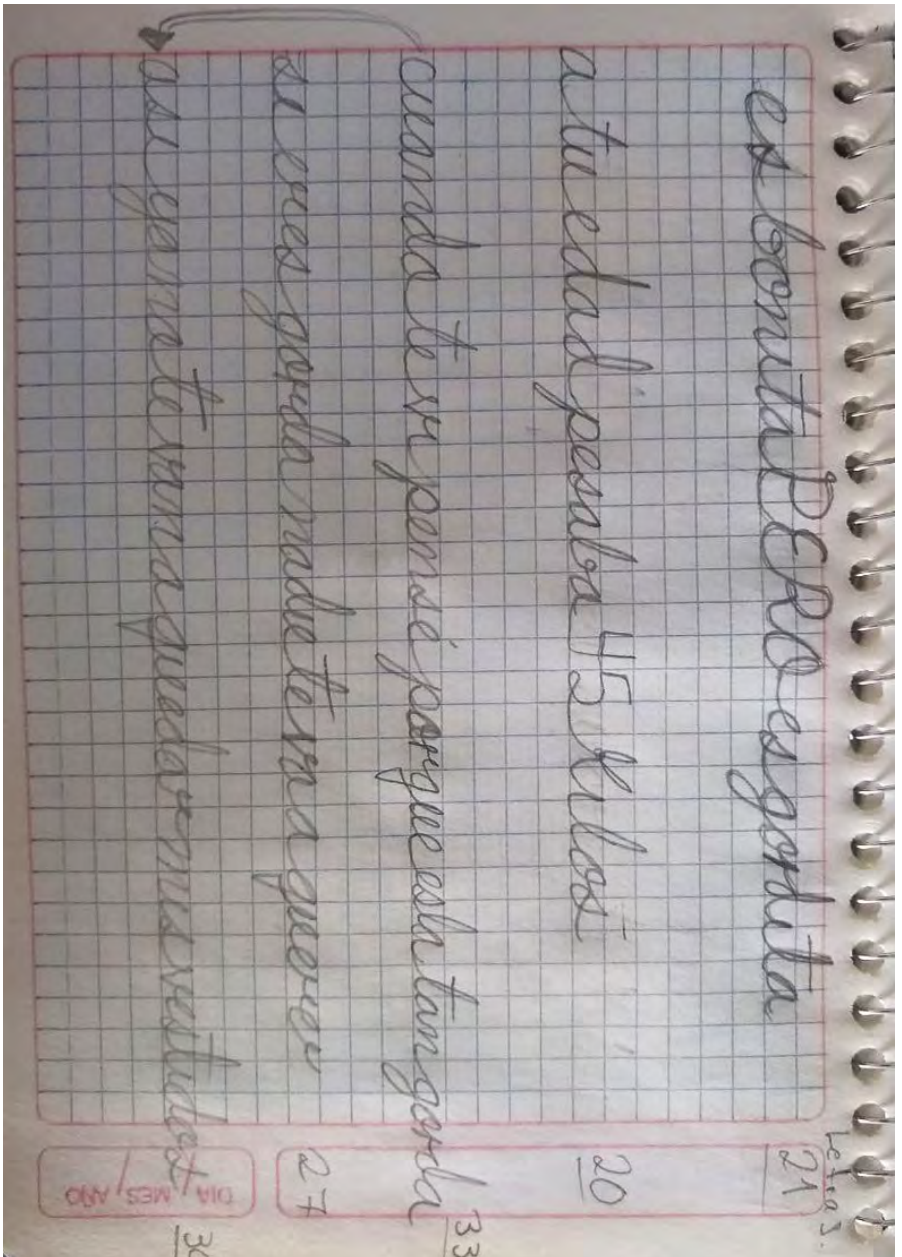 Letras.
es bonita PERO es gordita 21
a tu edad pesaba 45 kilos 20
cuando te vi pensé porque está tan gorda 33
si eres gorda nadie te va a querer 27
asi ya no te van a quedar mis vestidos
DIA / MES / AÑO